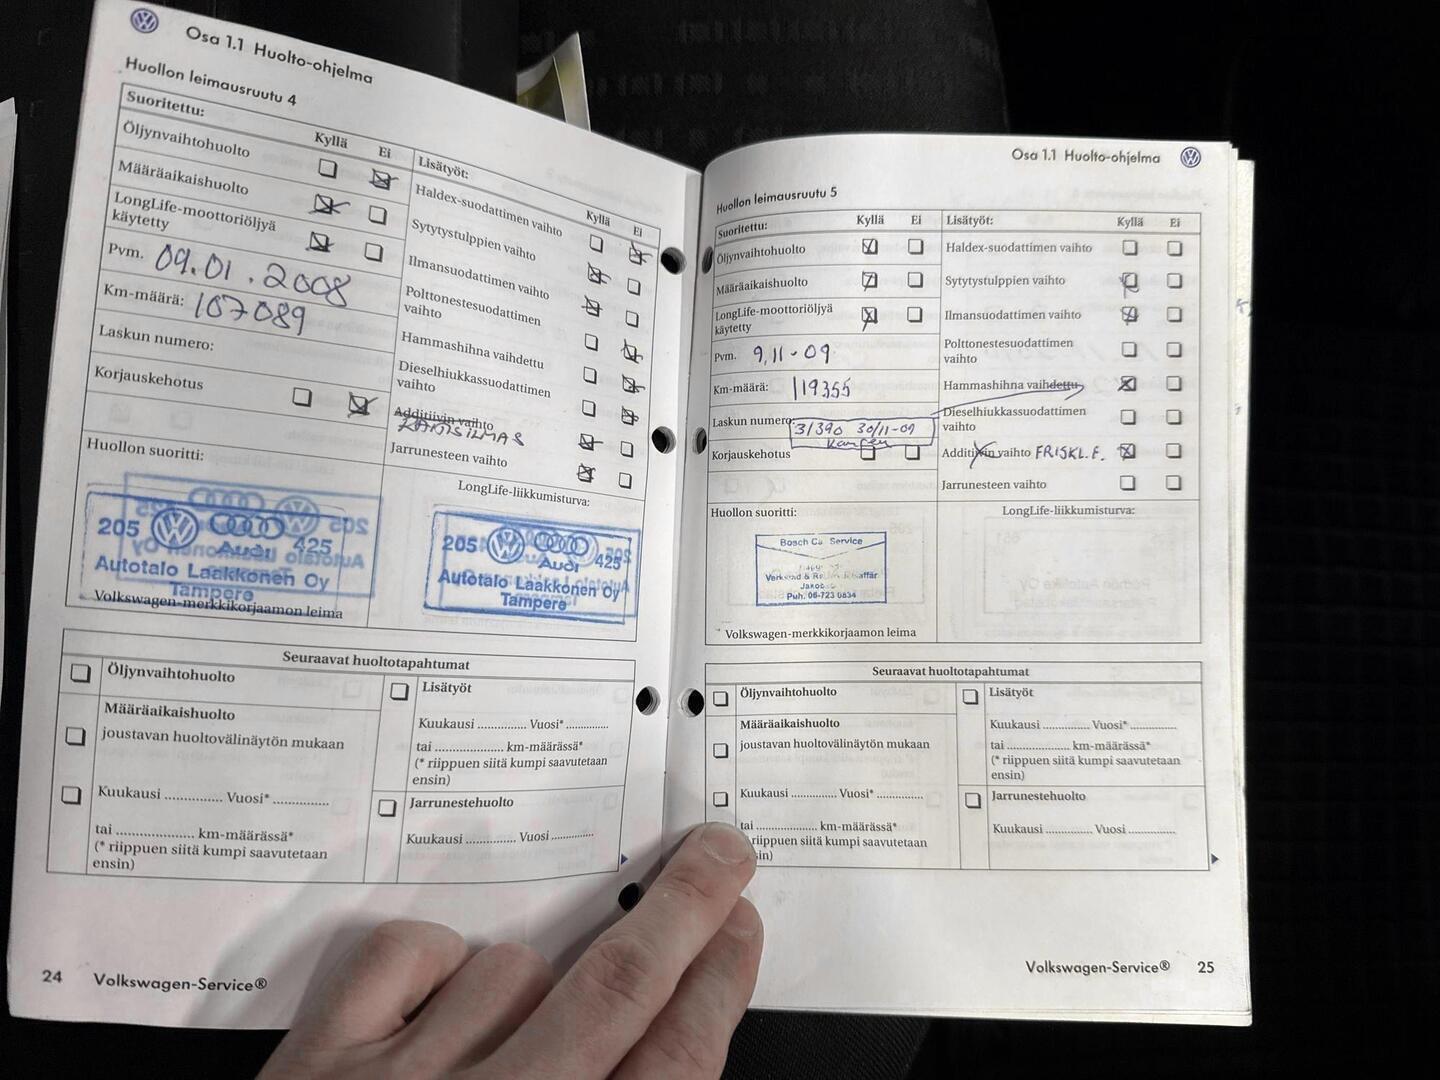 Osa 1.1 Huolto-ohjelma
Huollon leimausruutu 4
Suoritettu:
Kyllä Ei
Öljynvaihtohuolto
Määräaikaishuolto
LongLife-moottoriöljyä
käytetty
Pvm. 09.01.2008
Km-määrä: 107089
Laskun numero:
Korjauskehotus
Lisätyöt:
Kyllä Ei
Haldex-suodattimen vaihto
Sytytystulppien vaihto
Ilmansuodattimen vaihto
Polttonestesuodattimen
vaihto
Hammashihna vaihdettu
Dieselhiukkassuodattimen
vaihto
Additiivin vaihto
Jarrunesteen vaihto
Huollon suoritti:
205 Audi 425
Autotalo Laakkonen Oy
Tampere
Volkswagen-merkkikorjaamon leima
LongLife-liikkumisturva:
205 Audi 425
Autotalo Laakkonen Oy
Tampere
Seuraavat huoltotapahtumat
Öljynvaihtohuolto
Määräaikaishuolto
joustavan huoltovälinäytön mukaan
Kuukausi .............. Vuosi* ..............
tai .................... km-määrässä*
(* riippuen siitä kumpi saavutetaan
ensin)
Lisätyöt
Kuukausi ............. Vuosi* ............
tai .................... km-määrässä*
(* riippuen siitä kumpi saavutetaan
ensin)
Jarrunestehuolto
Kuukausi ............. Vuosi ............
24 Volkswagen-Service®
Osa 1.1 Huolto-ohjelma
Huollon leimausruutu 5
Suoritettu: Kyllä Ei
Öljynvaihtohuolto
Määräaikaishuolto
LongLife-moottoriöljyä
käytetty
Pvm. 9,11-09
Km-määrä: 119355
Laskun numero: 31390 30/11-09
Korjauskehotus
Lisätyöt: Kyllä Ei
Haldex-suodattimen vaihto
Sytytystulppien vaihto
Ilmansuodattimen vaihto
Polttonestesuodattimen
vaihto
Hammashihna vaihdettu
Dieselhiukkassuodattimen
vaihto
Additiivin vaihto FRISKL.F.
Jarrunesteen vaihto
Huollon suoritti:
Bosch Car Service
Puh. 06-723 0834
Volkswagen-merkkikorjaamon leima
LongLife-liikkumisturva:
Seuraavat huoltotapahtumat
Öljynvaihtohuolto
Määräaikaishuolto
joustavan huoltovälinäytön mukaan
Kuukausi ............ Vuosi* ............
tai .................... km-määrässä*
riippuen siitä kumpi saavutetaan
Lisätyöt
Kuukausi ............. Vuosi* ............
tai .................... km-määrässä*
(* riippuen siitä kumpi saavutetaan
ensin)
Jarrunestehuolto
Kuukausi ............. Vuosi ............
Volkswagen-Service® 25